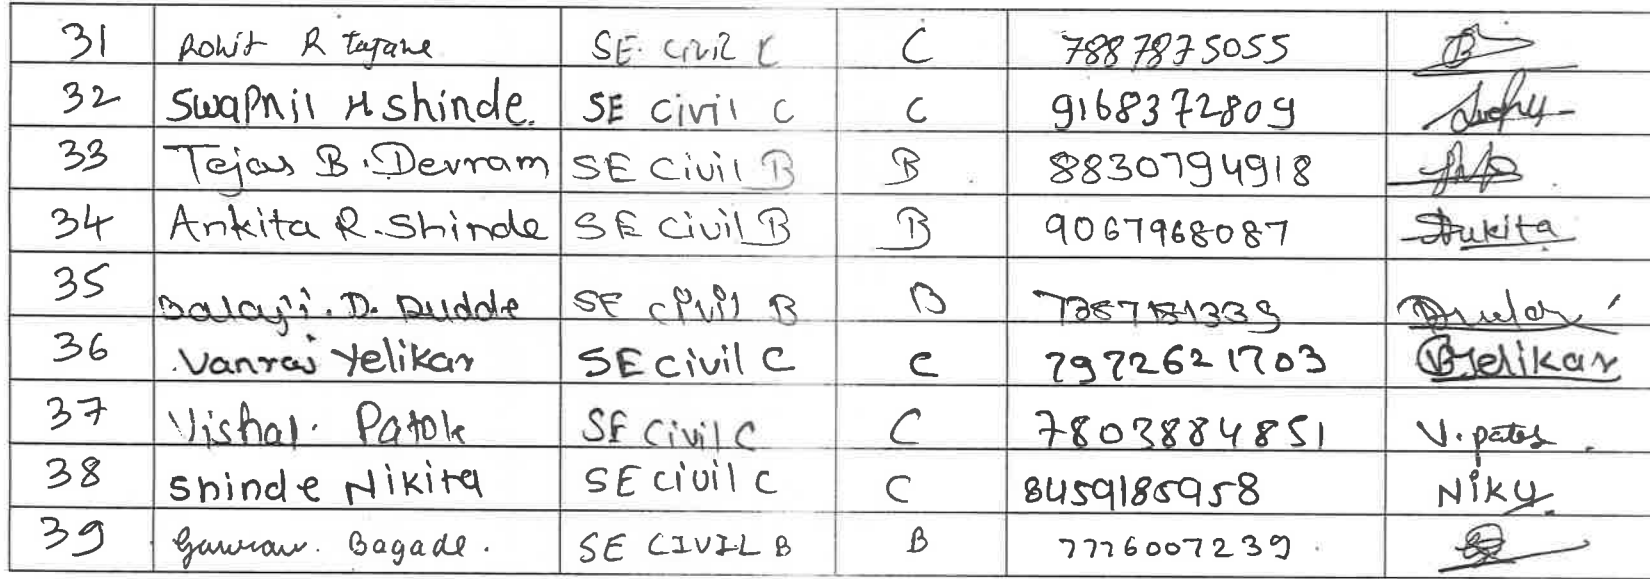 31 Rohit R Tajane SE Civil C C 7887875055
32 Swapnil H Shinde. SE Civil C C 9168372809
33 Tejas B. Devram SE Civil B B 8830794918
34 Ankita R. Shinde SE Civil B B 9067968087 Ankita
35 Balaji. D. Dudde SE Civil B B
36 Vanraj Yelikar SE Civil C C 7972621703 Yelikar
37 Vishal. Patole SE Civil C C 7803884851 V. patole
38 Shinde Nikita SE Civil C C 8459185958 Niky
39 Gaurav. Bagade. SE CIVIL B B 7776007239